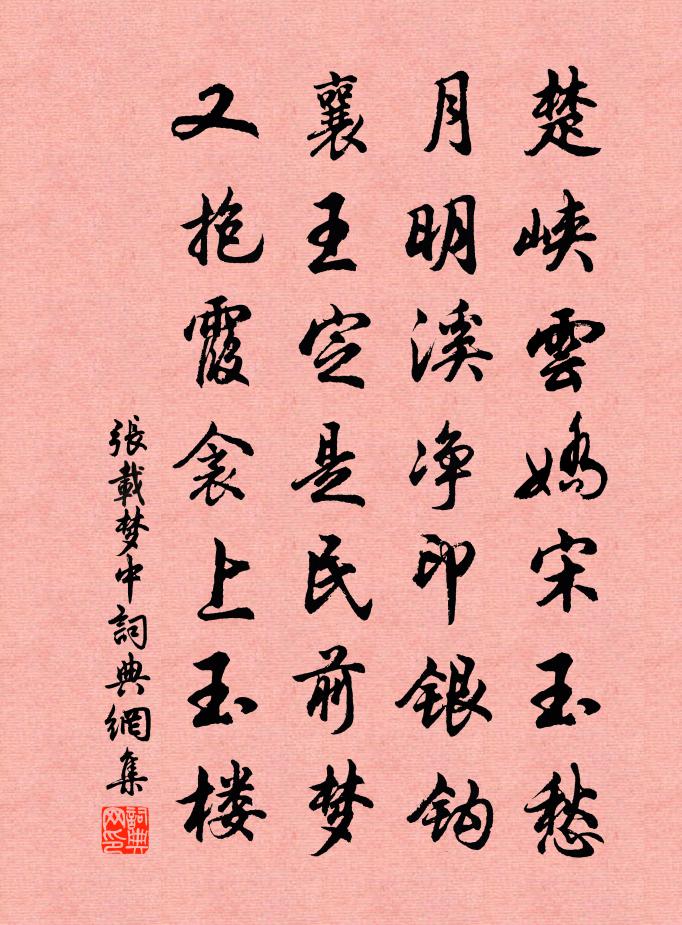 楚峽雲嬌宋玉愁
月明溪净印銀鈎
襄王定是民前梦
又抱霞衾上玉楼
張載梦中詞典網集
詞典网印